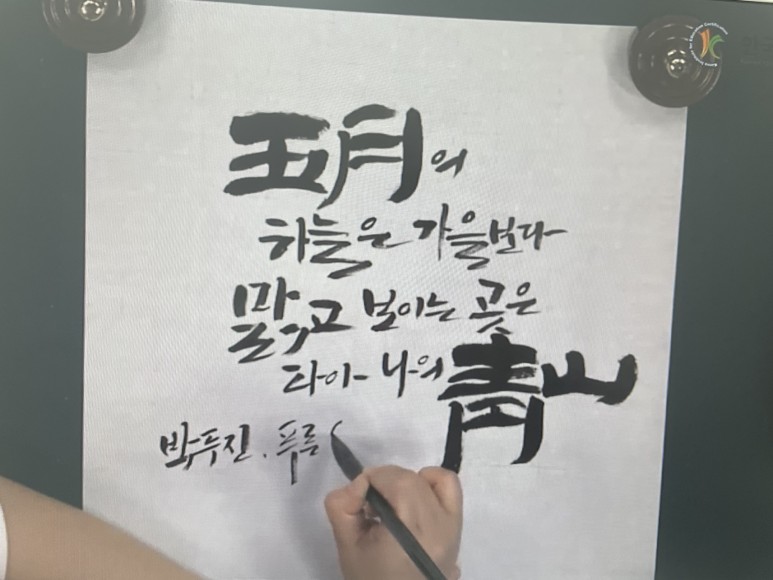 五月의
하늘은 가을보다
맑고 보이는 곳은
다아 나의 靑山
박두진. 푸름